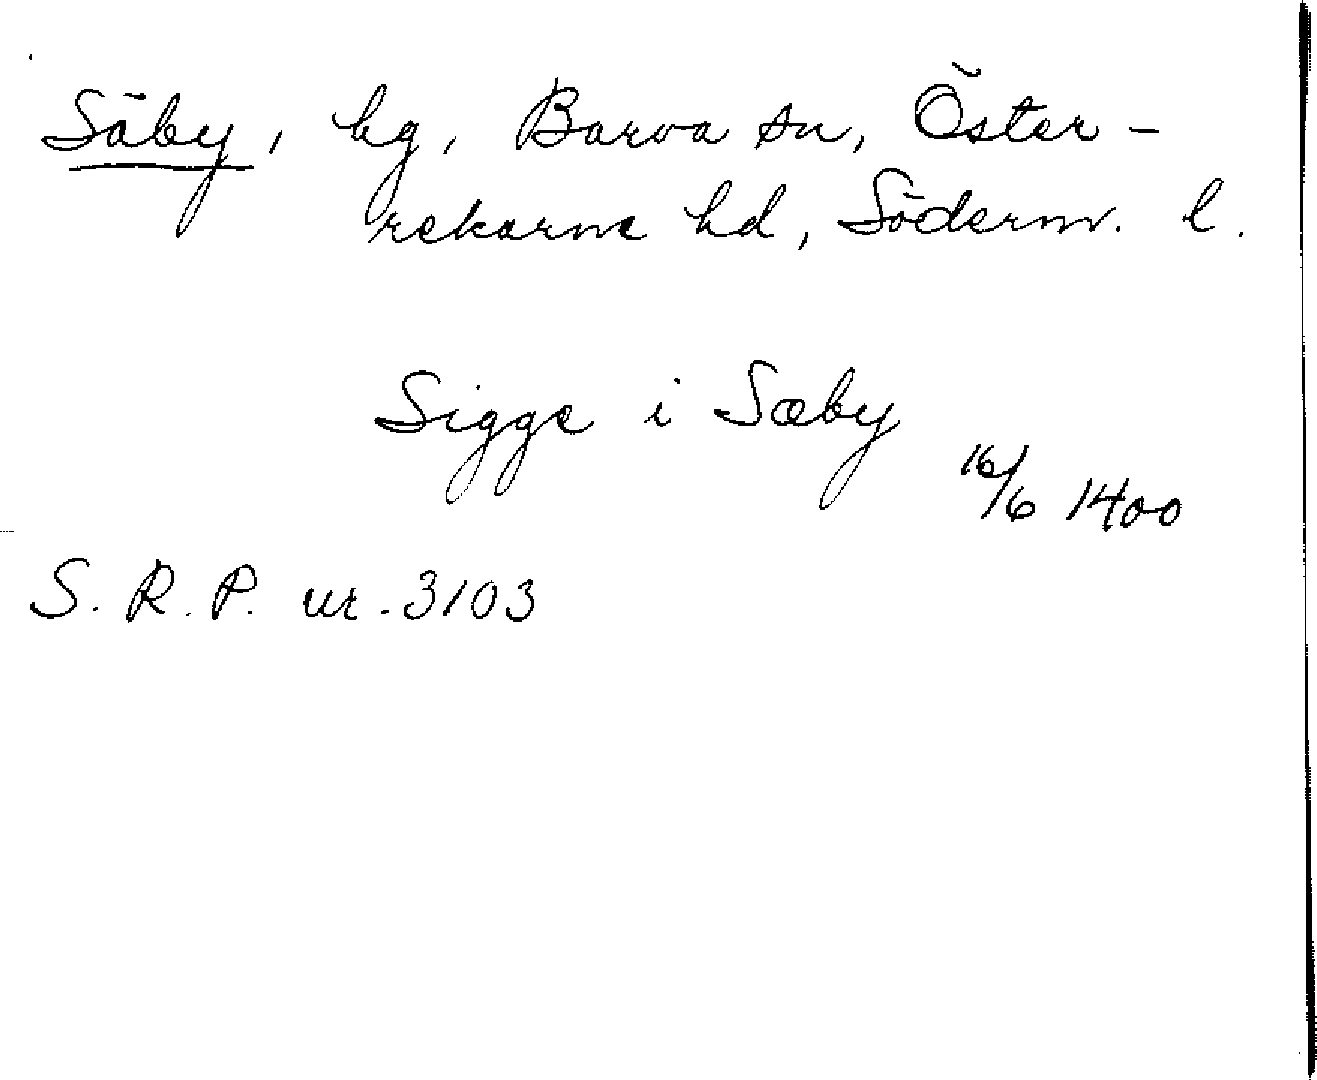 Säby, hg, Barva sn, Öster-
rekarne hd, Söderm. l.
Sigge i Sæby
16/6 1400
S. R. P. nr. 3103